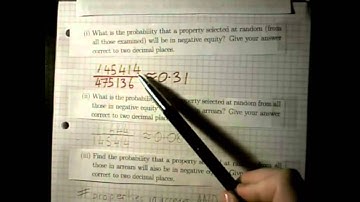 (i) What is the probability that a property selected at random (from
all those examined) will be in negative equity? Give your answer
correct to two decimal places.
145414
475136
≈0.31
(ii) What is the probability that a property selected at random from all
those in negative equity will also be in arrears? Give your answer
correct to two decimal places.
145414
≈0.0
(iii) Find the probability that a property selected at random from all
those in arrears will also be in negative equity. Give your answer
correct to two decimal places.
# properties in arrears AND